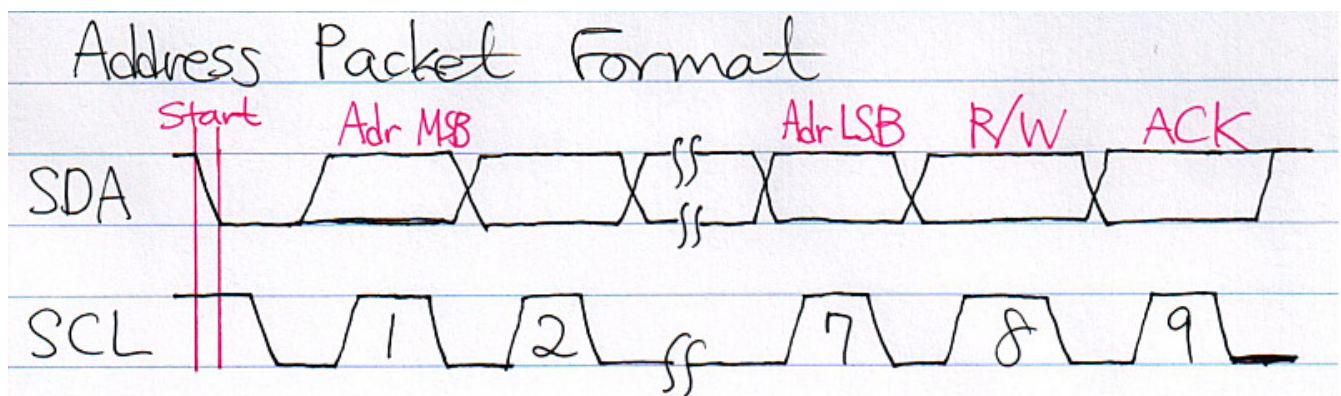 Address Packet Format
Start Adr MSB Adr LSB R/W ACK
SDA
SCL 1 2 7 8 9